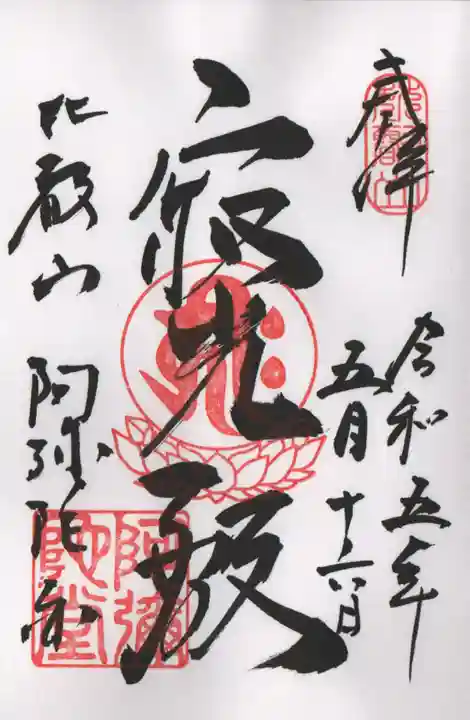 奉拝
令和五年
五月十六日
寂光殿
比叡山 阿弥陀堂
比叡山
阿彌陀堂